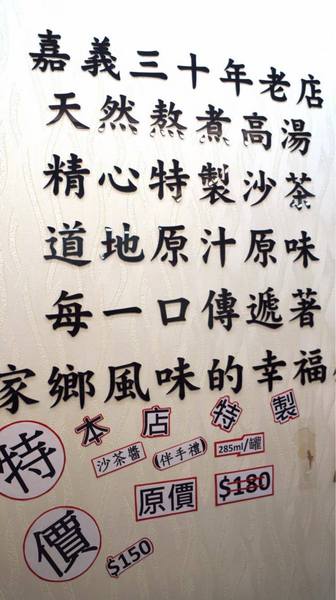 嘉義三十年老店
天然熬煮高湯
精心特製沙茶
道地原汁原味
每一口傳遞著
家鄉風味的幸福
本店特製
沙茶醬 (伴手禮) 285ml/罐
特價
原價 $180
$150